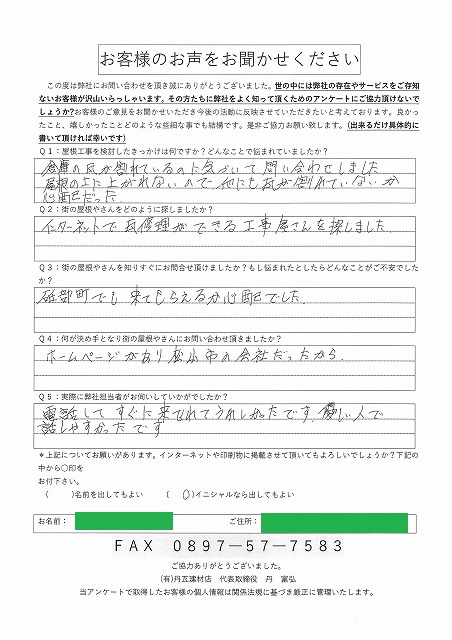 お客様のお声をお聞かせください
この度は弊社にお問い合わせを頂き誠にありがとうございました。世の中には弊社の存在やサービスをご存知
ないお客様が沢山いらっしゃいます。その方たちに弊社をよく知って頂くためのアンケートにご協力頂けないで
しょうか?お客様のご意見をお聞かせいただき今後の活動に反映させていただきたいと考えております。良かっ
たこと、嬉しかったことどのような些細な事でも結構です。是非ご協力お願い致します。(出来るだけ具体的に
書いて頂ければ幸いです)
Q1:屋根工事を検討したきっかけは何ですか?どんなことで悩まれていましたか?
倉庫の瓦が割れているのに気づいて問い合わせしました
屋根の上に上がれないので他にも瓦が割れていないか
心配だった
Q2:街の屋根やさんをどのように探しましたか?
インターネットで瓦修理ができる工事屋さんを探しました
Q3:街の屋根やさんを知りすぐにお問合せ頂けましたか?もし悩まれたとしたらどんなことがご不安でした
か?
砥部町でも来てもらえるか心配でした.
Q4:何が決め手となり街の屋根やさんにお問い合わせ頂きましたか?
ホームページがあり松山市の会社だったから.
Q5:実際に弊社担当者がお伺いしていかがでしたか?
電話してすぐに来てくれてうれしかったです.優しい人で
話しやすかったです
*上記についてお願いがあります。インターネットや印刷物に掲載させて頂いてもよろしいでしょうか?下記の
中から○印を
お付下さい。
( )名前を出してもよい ( ○ )イニシャルなら出してもよい
お名前: ご住所:
FAX 0897―57―7583
ご協力ありがとうございました。
(有)丹瓦建材店 代表取締役 丹 富弘
当アンケートで取得したお客様の個人情報は関係法規に基づき厳正に管理いたします。